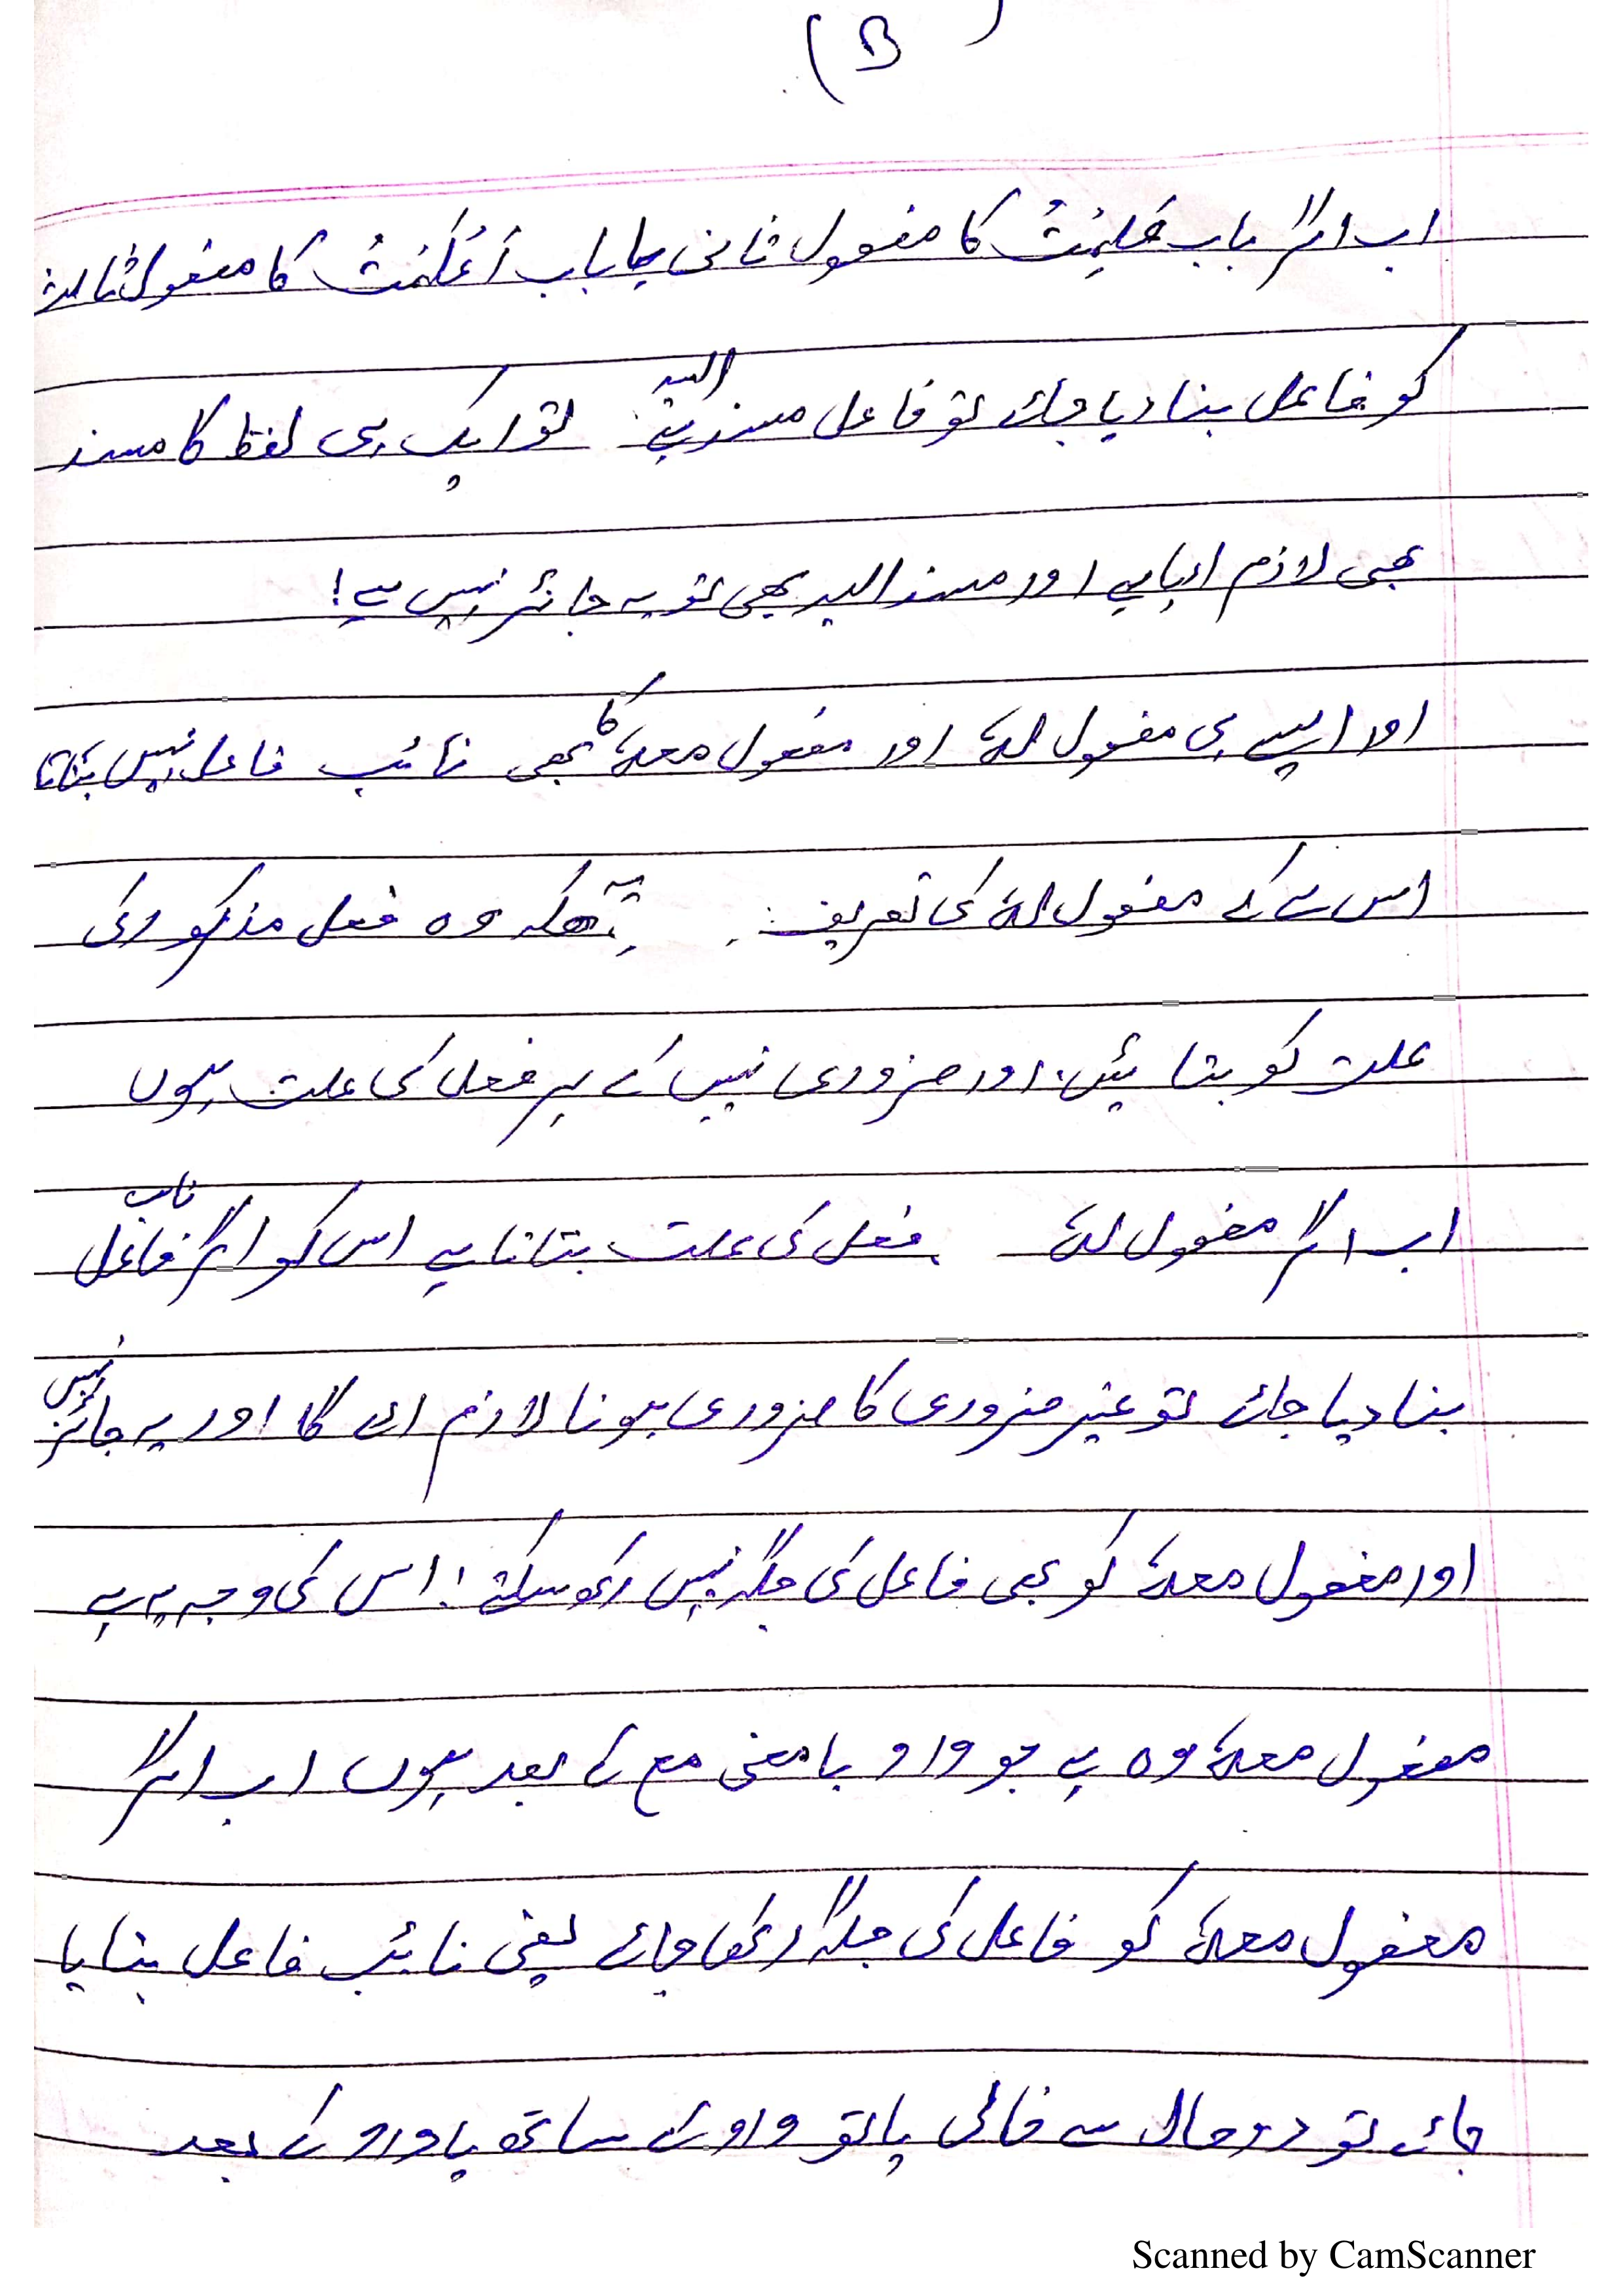 (B)
اب اگر باب عَلِمْتُ کا مفعول ثانی یا باب اَعْلَمْتُ کا مفعول ثالث
کو فاعل بنا دیا جائے تو فاعل مسند الیہ ہے تو ایک ہی لفظ کا مسند
بھی لازم ارہا ہے اور مسند الیہ بھی تو یہ جائز نہیں ہے!
اور ایسے ہی مفعول لہٗ اور مفعول معہٗ کا بھی نائب فاعل نہیں بنتا
اس لے کے مفعول لہٗ کی تعریف: یہ ہے کہ وہ فعل مذکور کی
علت کو بتائیں اور ضروری نہیں کے ہر فعل کی علت ہوں
اب اگر مفعول لہٗ فعل کی علت بتاتا ہے اس کو اگر نائب فاعل
بنا دیا جائے تو غیر ضروری کا ضروری ہونا لازم ائے گا اور یہ جائز نہیں
اور مفعول معہٗ کو بھی فاعل کی جگہ نہیں رکھ سکتے! اس کی وجہ یہ ہے
مفعول معہٗ وہ ہے جو واو بامعنی مع کے بعد ہوں اب اگر
مفعول معہٗ کو فاعل کی جگہ رکھا جائے یعنی نائب فاعل بنایا
جائے تو دو حال سے خالی یا تو واو کے ساتھ یا واو کے بعد
Scanned by CamScanner